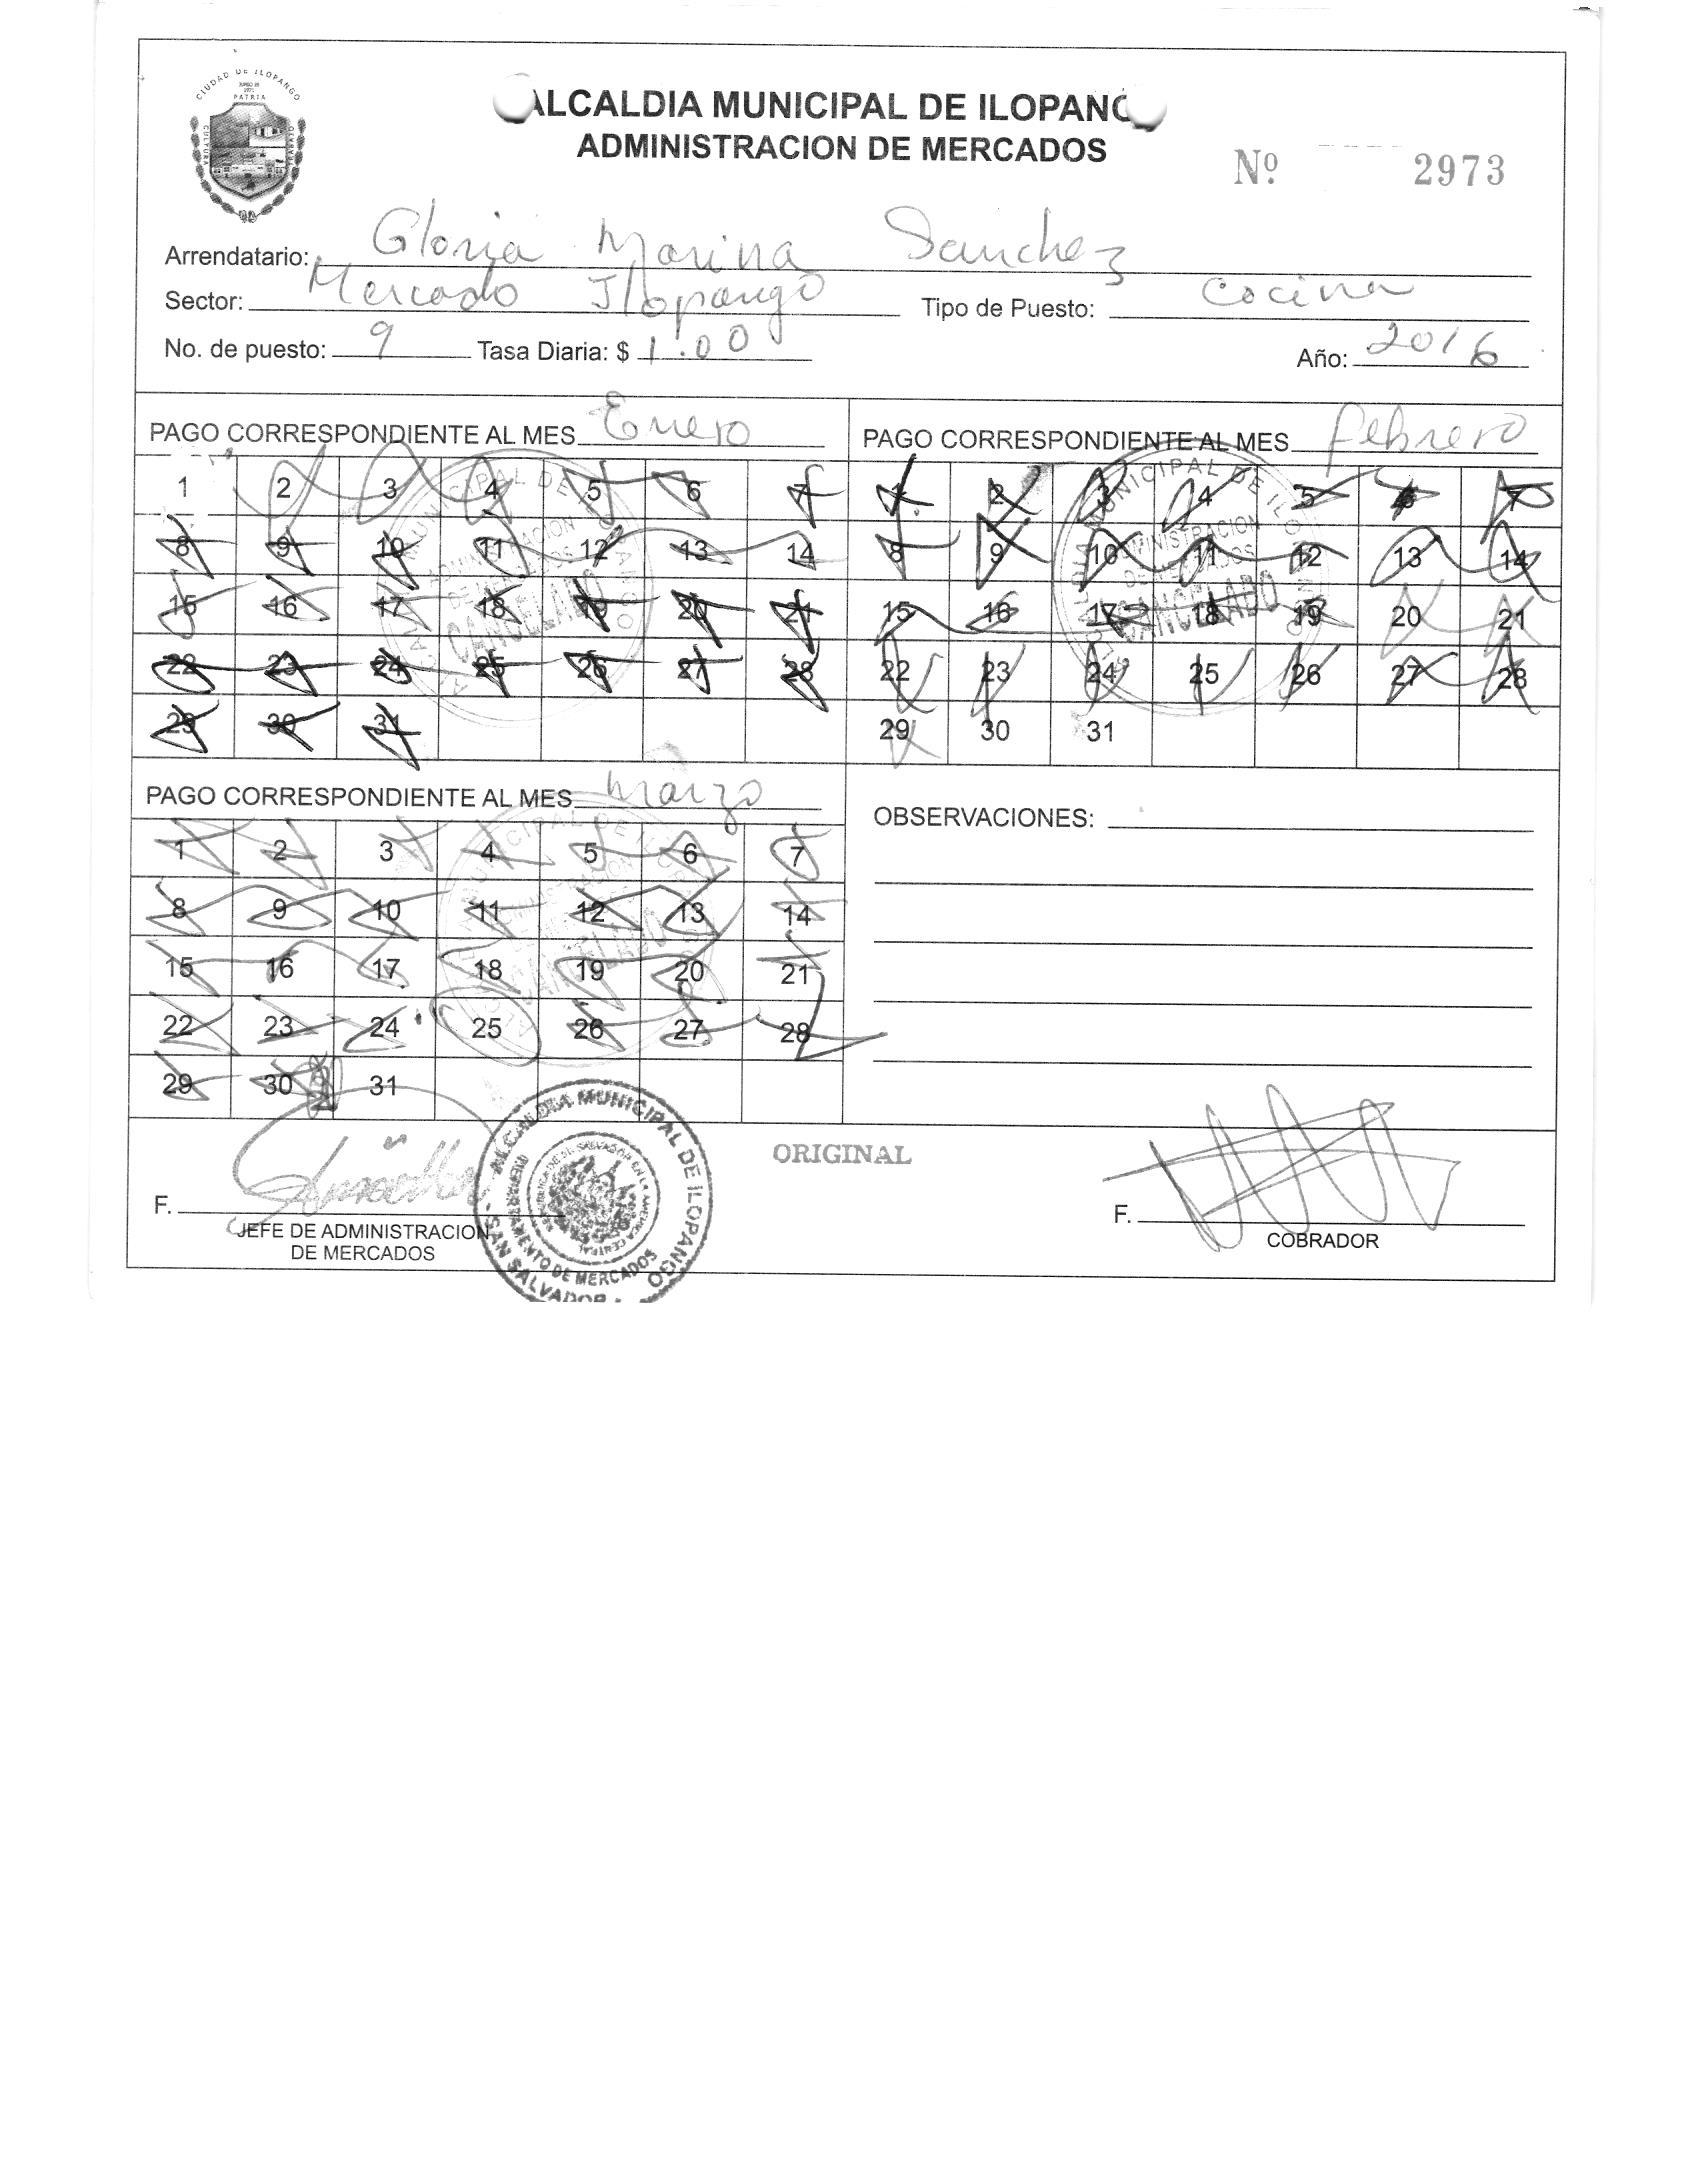 CIUDAD DE ILOPANGO
PATRIA
CULTURA
TRABAJO
ALCALDIA MUNICIPAL DE ILOPANG
ADMINISTRACION DE MERCADOS
Nº 2973
Arrendatario: Gloria Marina Sanchez
Sector: Mercado Ilopango Tipo de Puesto: Cocina
No. de puesto: 9 Tasa Diaria: $ 1.00 Año: 2016
PAGO CORRESPONDIENTE AL MES Enero
1 2 3 4 5 6 7
8 9 10 11 12 13 14
15 16 17 18 19 20 21
22 23 24 25 26 27 28
29 30 31
CANCELADO
PAGO CORRESPONDIENTE AL MES febrero
1 2 3 4 5 6 7
8 9 10 11 12 13 14
15 16 17 18 19 20 21
22 23 24 25 26 27 28
29 30 31
ADMINISTRACION
DE MERCADOS
CANCELADO
PAGO CORRESPONDIENTE AL MES Marzo
1 2 3 4 5 6 7
8 9 10 11 12 13 14
15 16 17 18 19 20 21
22 23 24 25 26 27 28
29 30 31
CANCELADO
OBSERVACIONES:
ORIGINAL
F.
JEFE DE ADMINISTRACION
DE MERCADOS
ALCALDIA MUNICIPAL DE ILOPANGO
SAN SALVADOR
DEPARTAMENTO DE MERCADOS
F.
COBRADOR